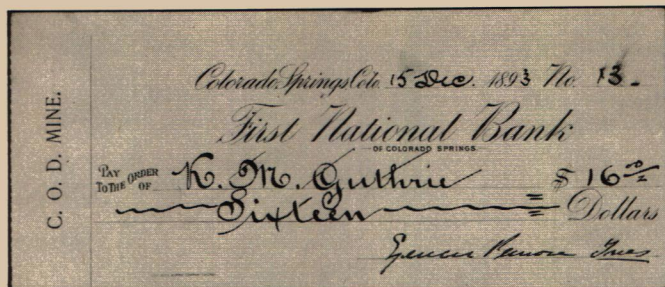 C. O. D. MINE.
Colorado Springs Colo. 15 Dec. 1893 No. 13.
First National Bank
OF COLORADO SPRINGS
PAY TO THE ORDER OF K. M. Guthrie $ 16 00
Sixteen Dollars
Spencer Penrose Treas